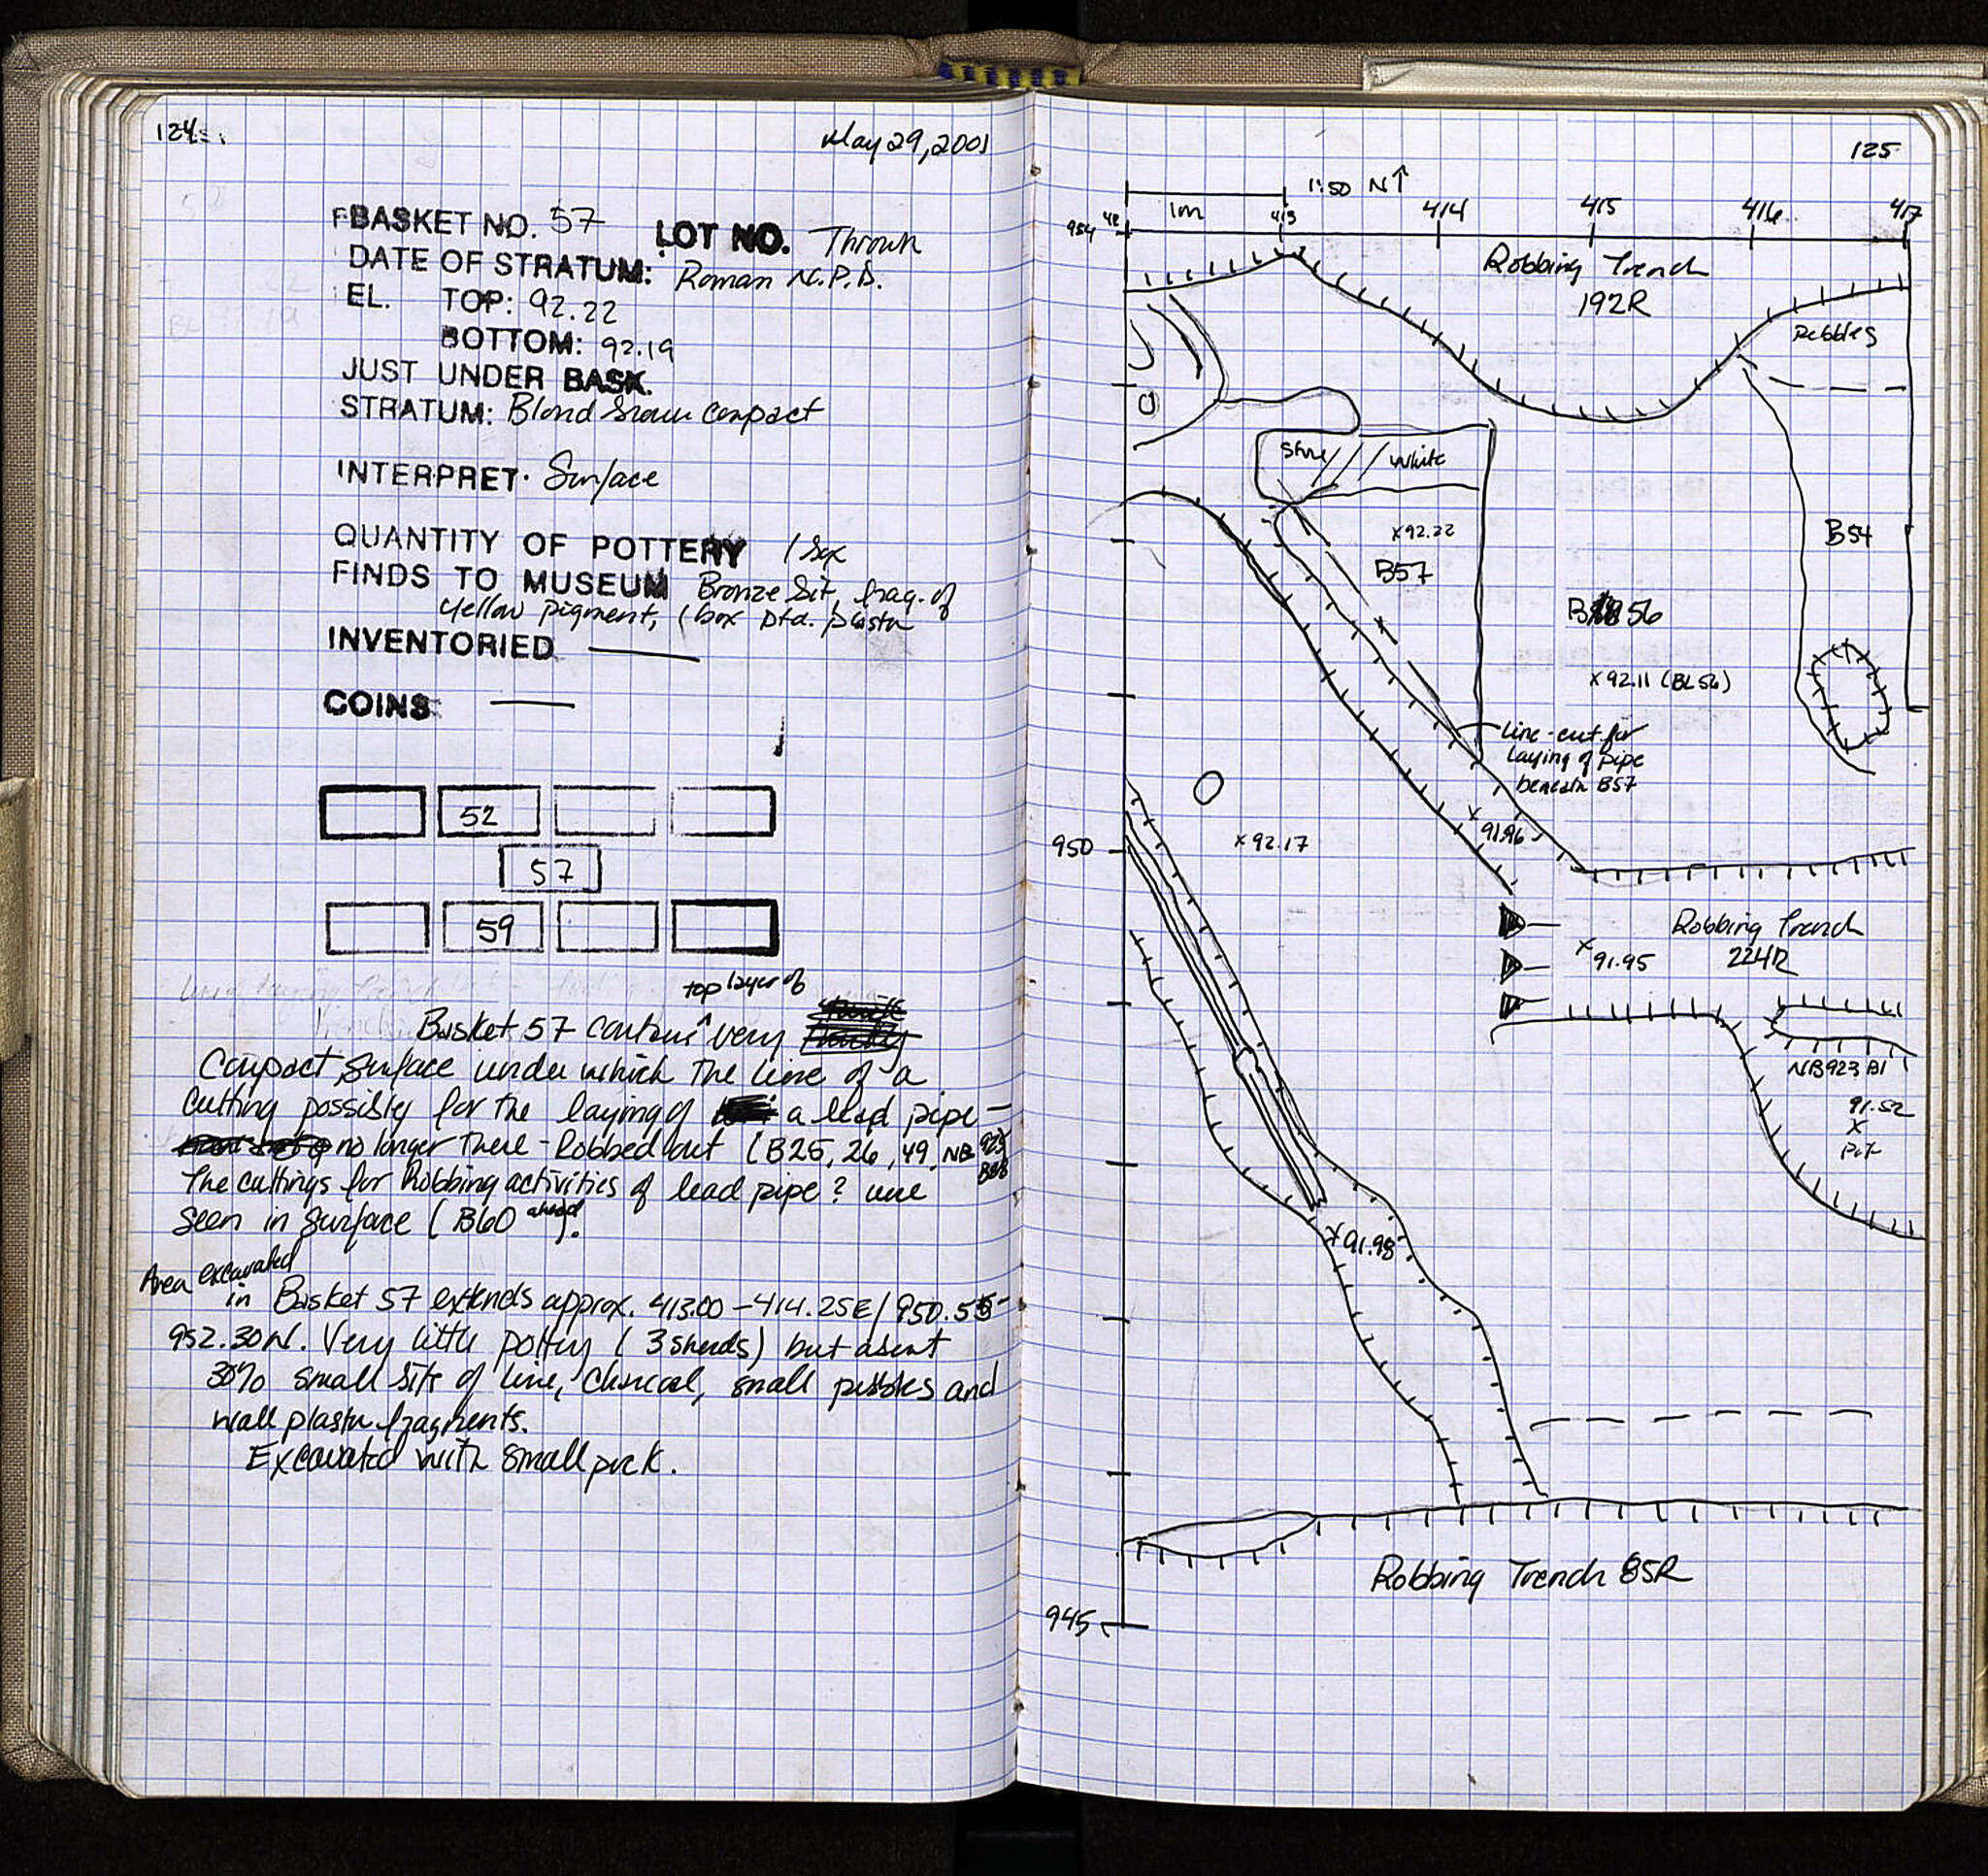 124
May 29, 2001
BASKET NO. 57 LOT NO. Thrown
DATE OF STRATUM: Roman N.P.D.
EL. TOP: 92.22
BOTTOM: 92.19
JUST UNDER BASK.
STRATUM: Blond brown compact
INTERPRET. Surface
QUANTITY OF POTTERY
FINDS TO MUSEUM Bronze bit, frag. of
yellow pigment, 1 box ptd. plaster
INVENTORIED —
COINS —
52
57
59
top layer of
Basket 57 contains ^ very
Compact surface under which the line of a
cutting possibly for the laying of a lead pipe —
no longer there - Robbed out (B25, 26, 49, NB
The cuttings for Robbing activities of lead pipe? were
seen in surface (B60 ahead).
Area excavated
in Basket 57 extends approx. 413.00 - 414.25E / 950.55-
952.30N. Very little pottery (3 sherds) but about
30% small bits of lime, charcoal, small pebbles and
wall plaster fragments.
Excavated with small pick.
125
1:50 N↑
1m
954 412 413 414 415 416 417
Robbing Trench
192R
Pebbles
Stone
White
x92.22
B57
B54
B 56
x92.11 (BL 56)
Line-cut for
laying of pipe
beneath B57
x 91.96
950
x92.17
Robbing Trench
224R
x 91.95
NB923 B1
91.52
x
Pit
x91.98
Robbing Trench 85R
945